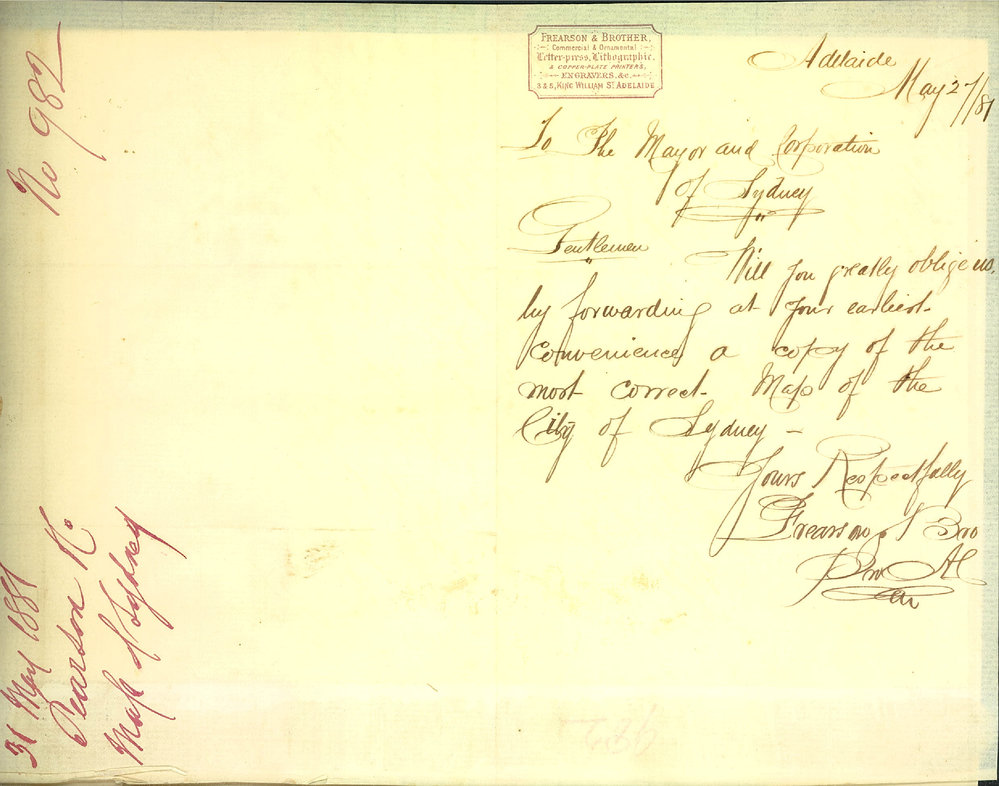 FREARSON & BROTHER,
Commercial & Ornamental
Letter-press, Lithographic,
& COPPER-PLATE PRINTERS,
ENGRAVERS, &c.
3 & 5, KING WILLIAM ST ADELAIDE
Adelaide
May 27/81
To The Mayor and Corporation
of Sydney
Gentlemen
Will you greatly oblige us,
by forwarding at your earliest
convenience a copy of the
most correct Map of the
City of Sydney –
Yours Respectfully
Frearson & Bro
Per
No 982
31 May 1881
Pearson
Map of Sydney
982